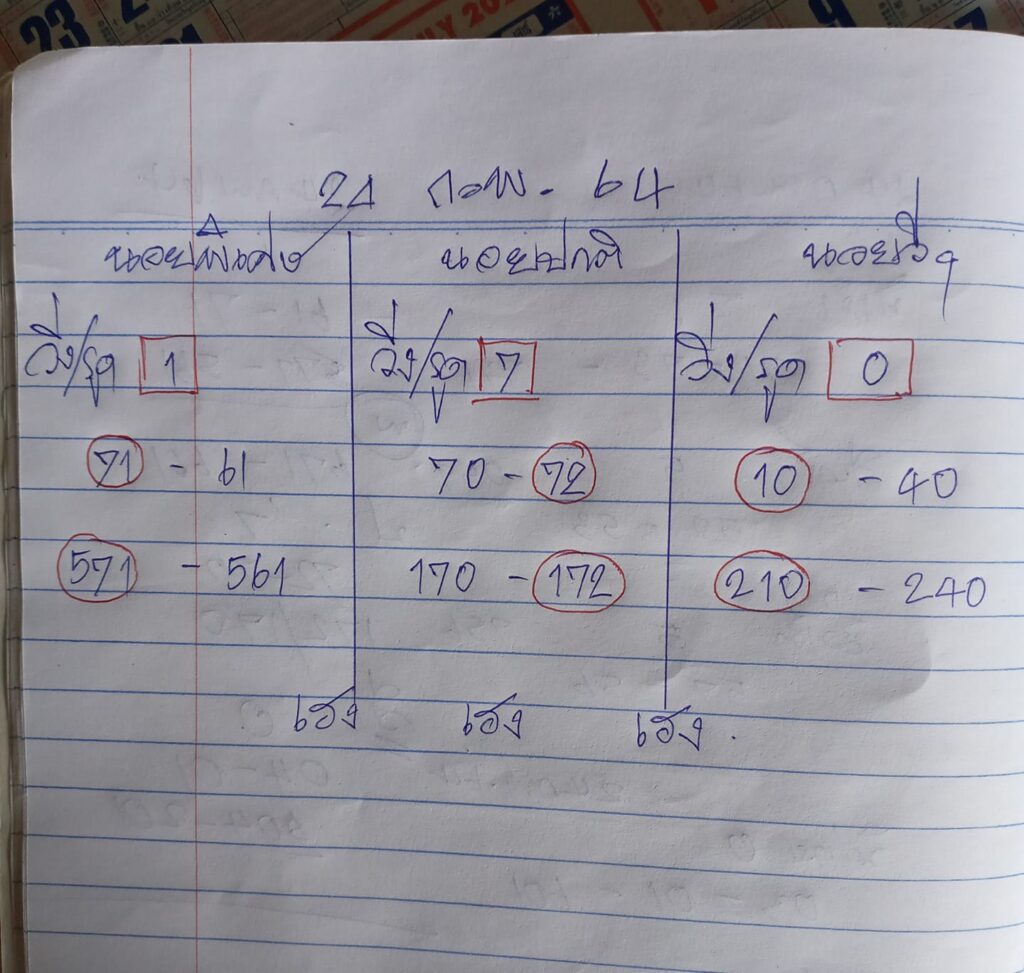 24 ก.พ. 64
นอยพิเศษ นอยปกติ นอยวีไอ
วิ่ง/รูด 1 วิ่ง/รูด 7 วิ่ง/รูด 0
71 - 61 70 - 72 10 - 40
571 - 561 170 - 172 210 - 240
เฮง เฮง เฮง.